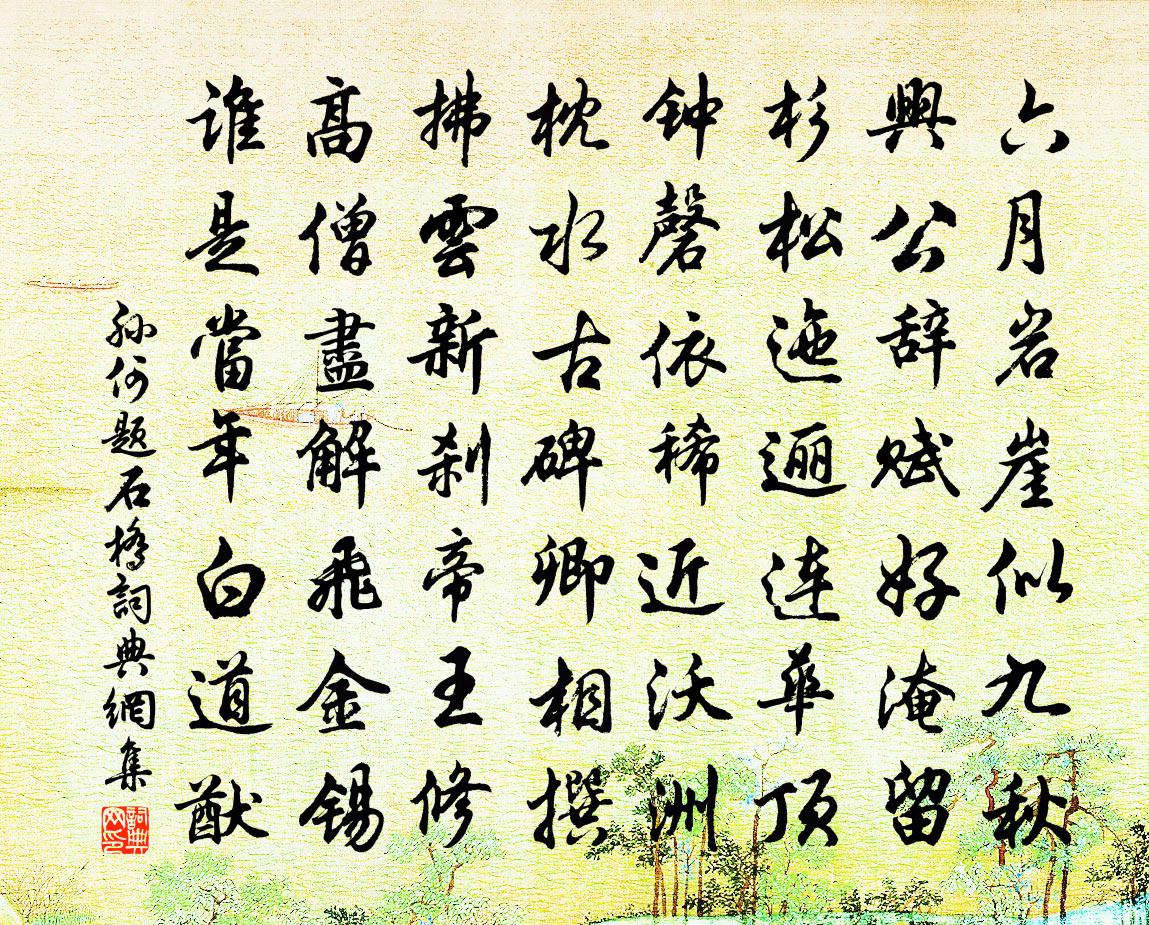 六月岩崖似九秋
興公辞赋好淹留
杉松迤逦连華顶
钟磬依稀近沃洲
枕水古碑卿相撰
拂雲新刹帝王修
高僧盡解飛金锡
谁是當年白道猷
孙何题石橋詞典網集
詞典網印